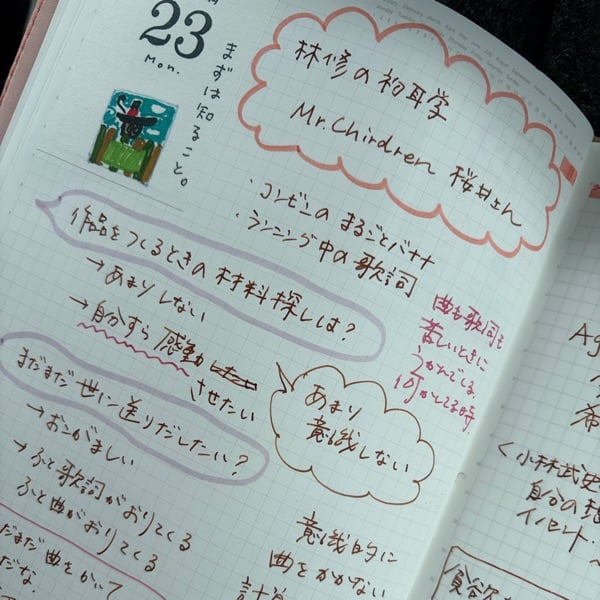 23
Mon.
まずは知ること。
林修の初耳学
Mr.Chirdren 桜井さん
・コンビニの まるごとバナナ
・ランニング中の歌詞
作品をつくるときの材料探しは?
→あまりしない
→自分すら感動
させたい
曲も歌詞も
苦しいときに
うかんでくる
何かしてる時。
まだまだ世に送りだしたい?
→おこがましい
→ふと歌詞がおりてくる
ふと曲がおりてくる
あまり
意識しない
意識的に
曲をかかない
だまだ曲をかいて
だな.
<小林武史
自分の
イノセント.
貪欲